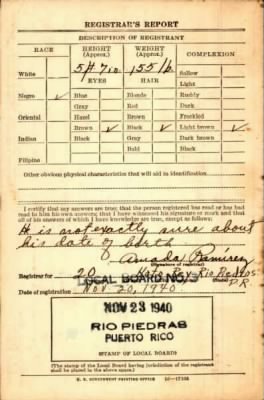 REGISTRAR'S REPORT
DESCRIPTION OF REGISTRANT
RACE HEIGHT (Approx.) WEIGHT (Approx.) COMPLEXION
White 5ft 7in. 155 lb. Sallow
EYES HAIR Light
Negro ✓ Blue Blonde Ruddy
Gray Red Dark
Oriental Hazel Brown Freckled
Brown ✓ Black ✓ Light brown ✓
Indian Black Gray Dark brown
Bald Black
Filipino
Other obvious physical characteristics that will aid in identification
I certify that my answers are true; that the person registered has read or has had
read to him his own answers; that I have witnessed his signature or mark and that
all of his answers of which I have knowledge are true, except as follows:
He is not exactly sure about
his date of birth
Amada Ramirez
(Signature of registrar)
Registrar for 20 Hato Rey Rio Piedras
P.R.
LOCAL BOARD NO. 3
Date of registration Nov 20, 1940
NOV 23 1940
RIO PIEDRAS
PUERTO RICO
(STAMP OF LOCAL BOARD)
(The stamp of the Local Board having jurisdiction of the registrant
shall be placed in the above space.)
U. S. GOVERNMENT PRINTING OFFICE